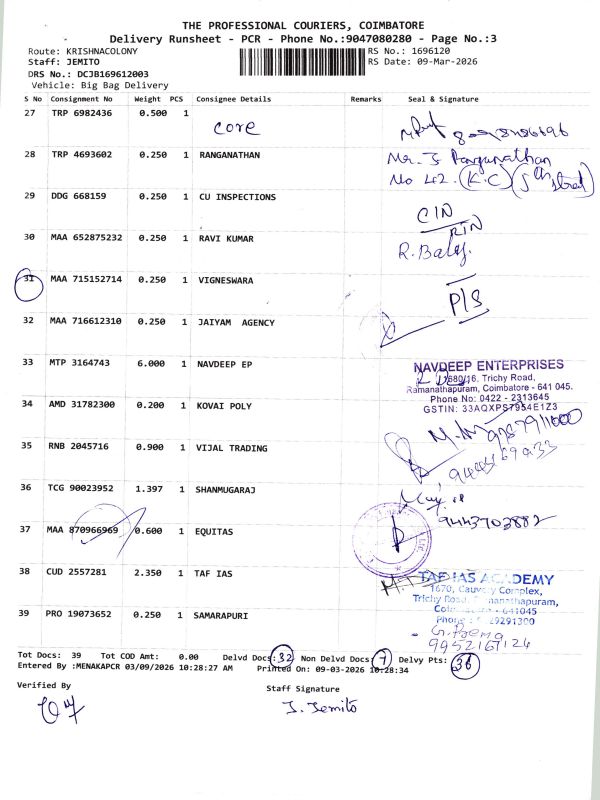 THE PROFESSIONAL COURIERS, COIMBATORE
Delivery Runsheet - PCR - Phone No.:9047080280 - Page No.:3
Route: KRISHNACOLONY
RS No.: 1696120
Staff: JEMITO
RS Date: 09-Mar-2026
DRS No.: DCJB169612003
Vehicle: Big Bag Delivery
S No Consignment No Weight PCS Consignee Details Remarks Seal & Signature
27 TRP 6982436 0.500 1 core
28 TRP 4693602 0.250 1 RANGANATHAN Mr. J Ranganathan
No 42. (K.C) (5th street)
29 DDG 668159 0.250 1 CU INSPECTIONS
30 MAA 652875232 0.250 1 RAVI KUMAR
31 MAA 715152714 0.250 1 VIGNESWARA
32 MAA 716612310 0.250 1 JAIYAM AGENCY
33 MTP 3164743 6.000 1 NAVDEEP EP
NAVDEEP ENTERPRISES
1680/16, Trichy Road,
Ramanathapuram, Coimbatore - 641 045.
Phone No: 0422 - 2313645
GSTIN: 33AQXPS7954E1Z3
34 AMD 31782300 0.200 1 KOVAI POLY
35 RNB 2045716 0.900 1 VIJAL TRADING
36 TCG 90023952 1.397 1 SHANMUGARAJ
9443703882
37 MAA 870966969 0.600 1 EQUITAS
38 CUD 2557281 2.350 1 TAF IAS
TAF IAS ACADEMY
1670, Cauvery Complex,
Trichy Road, Ramanathapuram,
Coimbatore - 641045
39 PRO 19073652 0.250 1 SAMARAPURI
G. Prema
9952167124
Tot Docs: 39 Tot COD Amt: 0.00 Delvd Docs: 32 Non Delvd Docs: 7 Delvy Pts: 36
Entered By :MENAKAPCR 03/09/2026 10:28:27 AM Printed On: 09-03-2026 10:28:34
Verified By
Staff Signature
J. Jemito